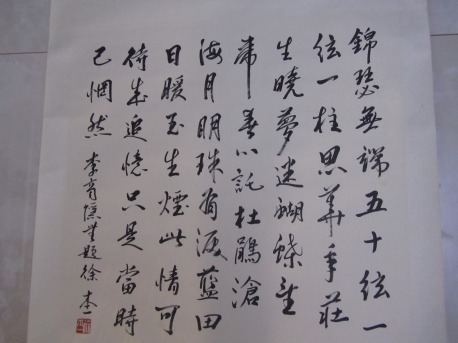 錦瑟無端五十弦一
弦一柱思華年莊
生曉夢迷蝴蝶望
帝春心託杜鵑滄
海月明珠有淚藍田
日暖玉生煙此情可
待成追憶只是當時
已惘然 李商隱無題徐本一